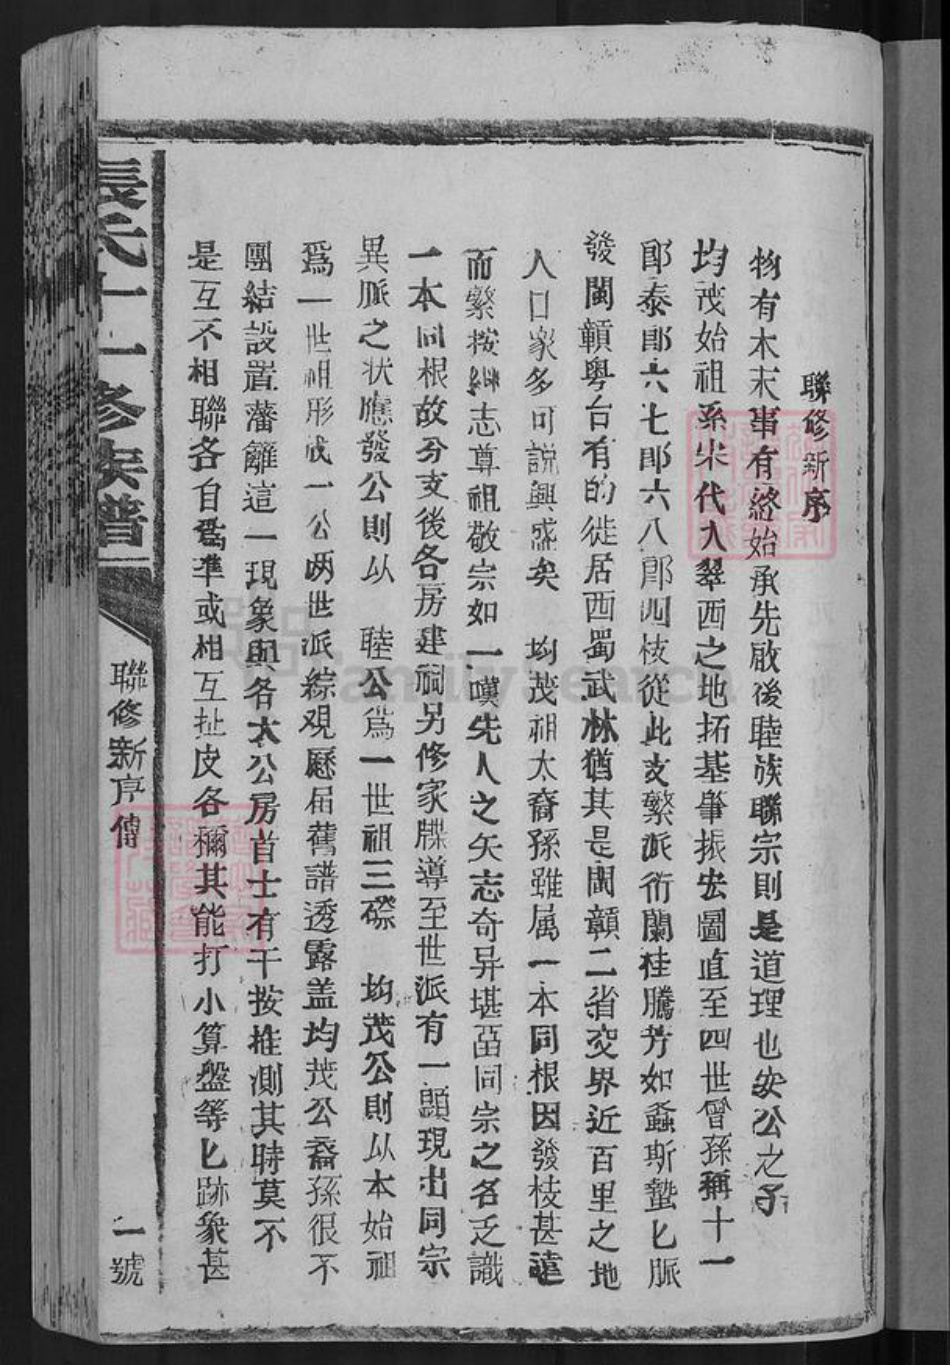 聯修新序
物有木末事有終始承先啟後睦族聯宗則是道理也安公之子
均茂始祖系宋代入翠西之地拓基肇振宏圖直至四世曾孫稱十一
郎泰郎六七郎六八郎四枝從此支繁派衍蘭桂騰芳如螽斯蟄匕脈
發閩贛粵台有的徙居西蜀武林猶其是閩贛二省交界近百里之地
人口家多可説興盛矣　均茂祖太裔孫雖属一本同根因發枝甚遠
而繁按繼志尊祖敬宗如一嘆先人之矢志奇异堪畱同宗之各乏識
一本同根故分支後各房建祠另修家牒導至世派有一顕現出同宗
異脈之状應發公則以　睦公爲一世祖三磜　均茂公則以本始祖
爲一世祖形成一公两世派綜观歷届舊譜透露盖均茂公裔孫很不
團結設置藩籬這一現象與各大公房首士有干按推測其時莫不
是互不相聯各自爲準或相互扯皮各彌其能打小算盤等匕跡象甚
張氏十一修族譜
聯修新序傳
一號
FamilySearch